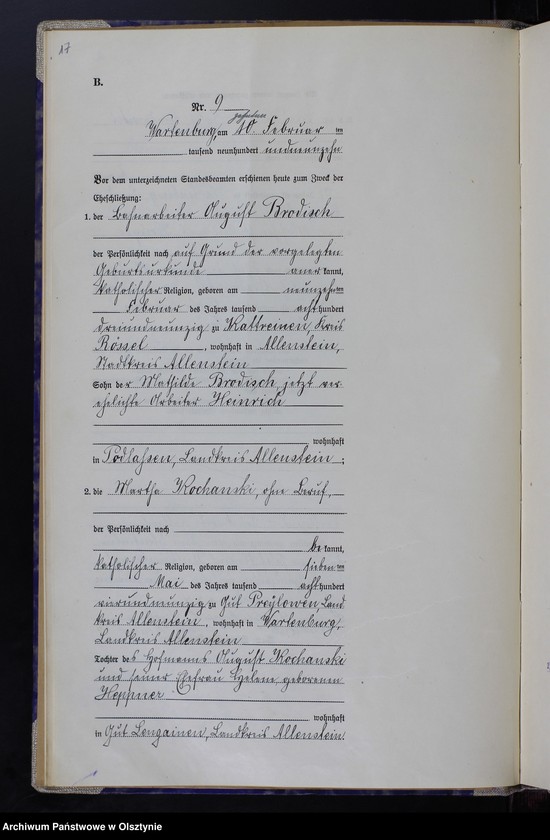 17
B.
Nr. 9
Wartenburg, am zehnten 10. Februar ten
tausend neunhundert undneunzehn
Vor dem unterzeichneten Standesbeamten erschienen heute zum Zweck der
Eheschließung:
1. der Bahnarbeiter August Brodisch
der Persönlichkeit nach auf Grund der vorgelegten
Geburtsurkunde anerkannt,
katholischer Religion, geboren am neunzehnten
Februar des Jahres tausend achthundert
dreiundneunzig zu Kattreinen, Kreis
Rössel, wohnhaft in Allenstein,
Stadtkreis Allenstein
Sohn der Mathilde Brodisch, jetzt ver
ehelichte Arbeiter Heinrich
wohnhaft
in Podlahsen, Landkreis Allenstein;
2. die Martha Kochanski, ohne Beruf,
der Persönlichkeit nach
bekannt,
katholischer Religion, geboren am siebenten
Mai des Jahres tausend achthundert
vierundneunzig zu Gut Preylowen, Land
kreis Allenstein, wohnhaft in Wartenburg,
Landkreis Allenstein
Tochter des Hofmanns August Kochanski
und seiner Ehefrau Helene, geborenen
Heppner
wohnhaft
in Gut Lengainen, Landkreis Allenstein.
Archiwum Państwowe w Olsztynie